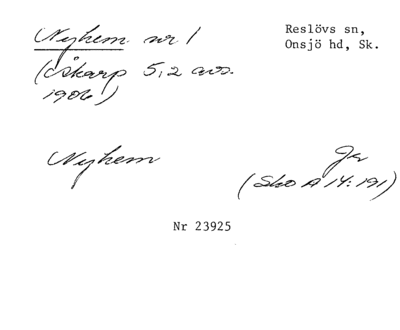 Nyhem nr 1
Reslövs sn,
Onsjö hd, Sk.
(Åkarp 5,2 avs.
1906)
Nyhem
Je
(Sko A 14:191)
Nr 23925